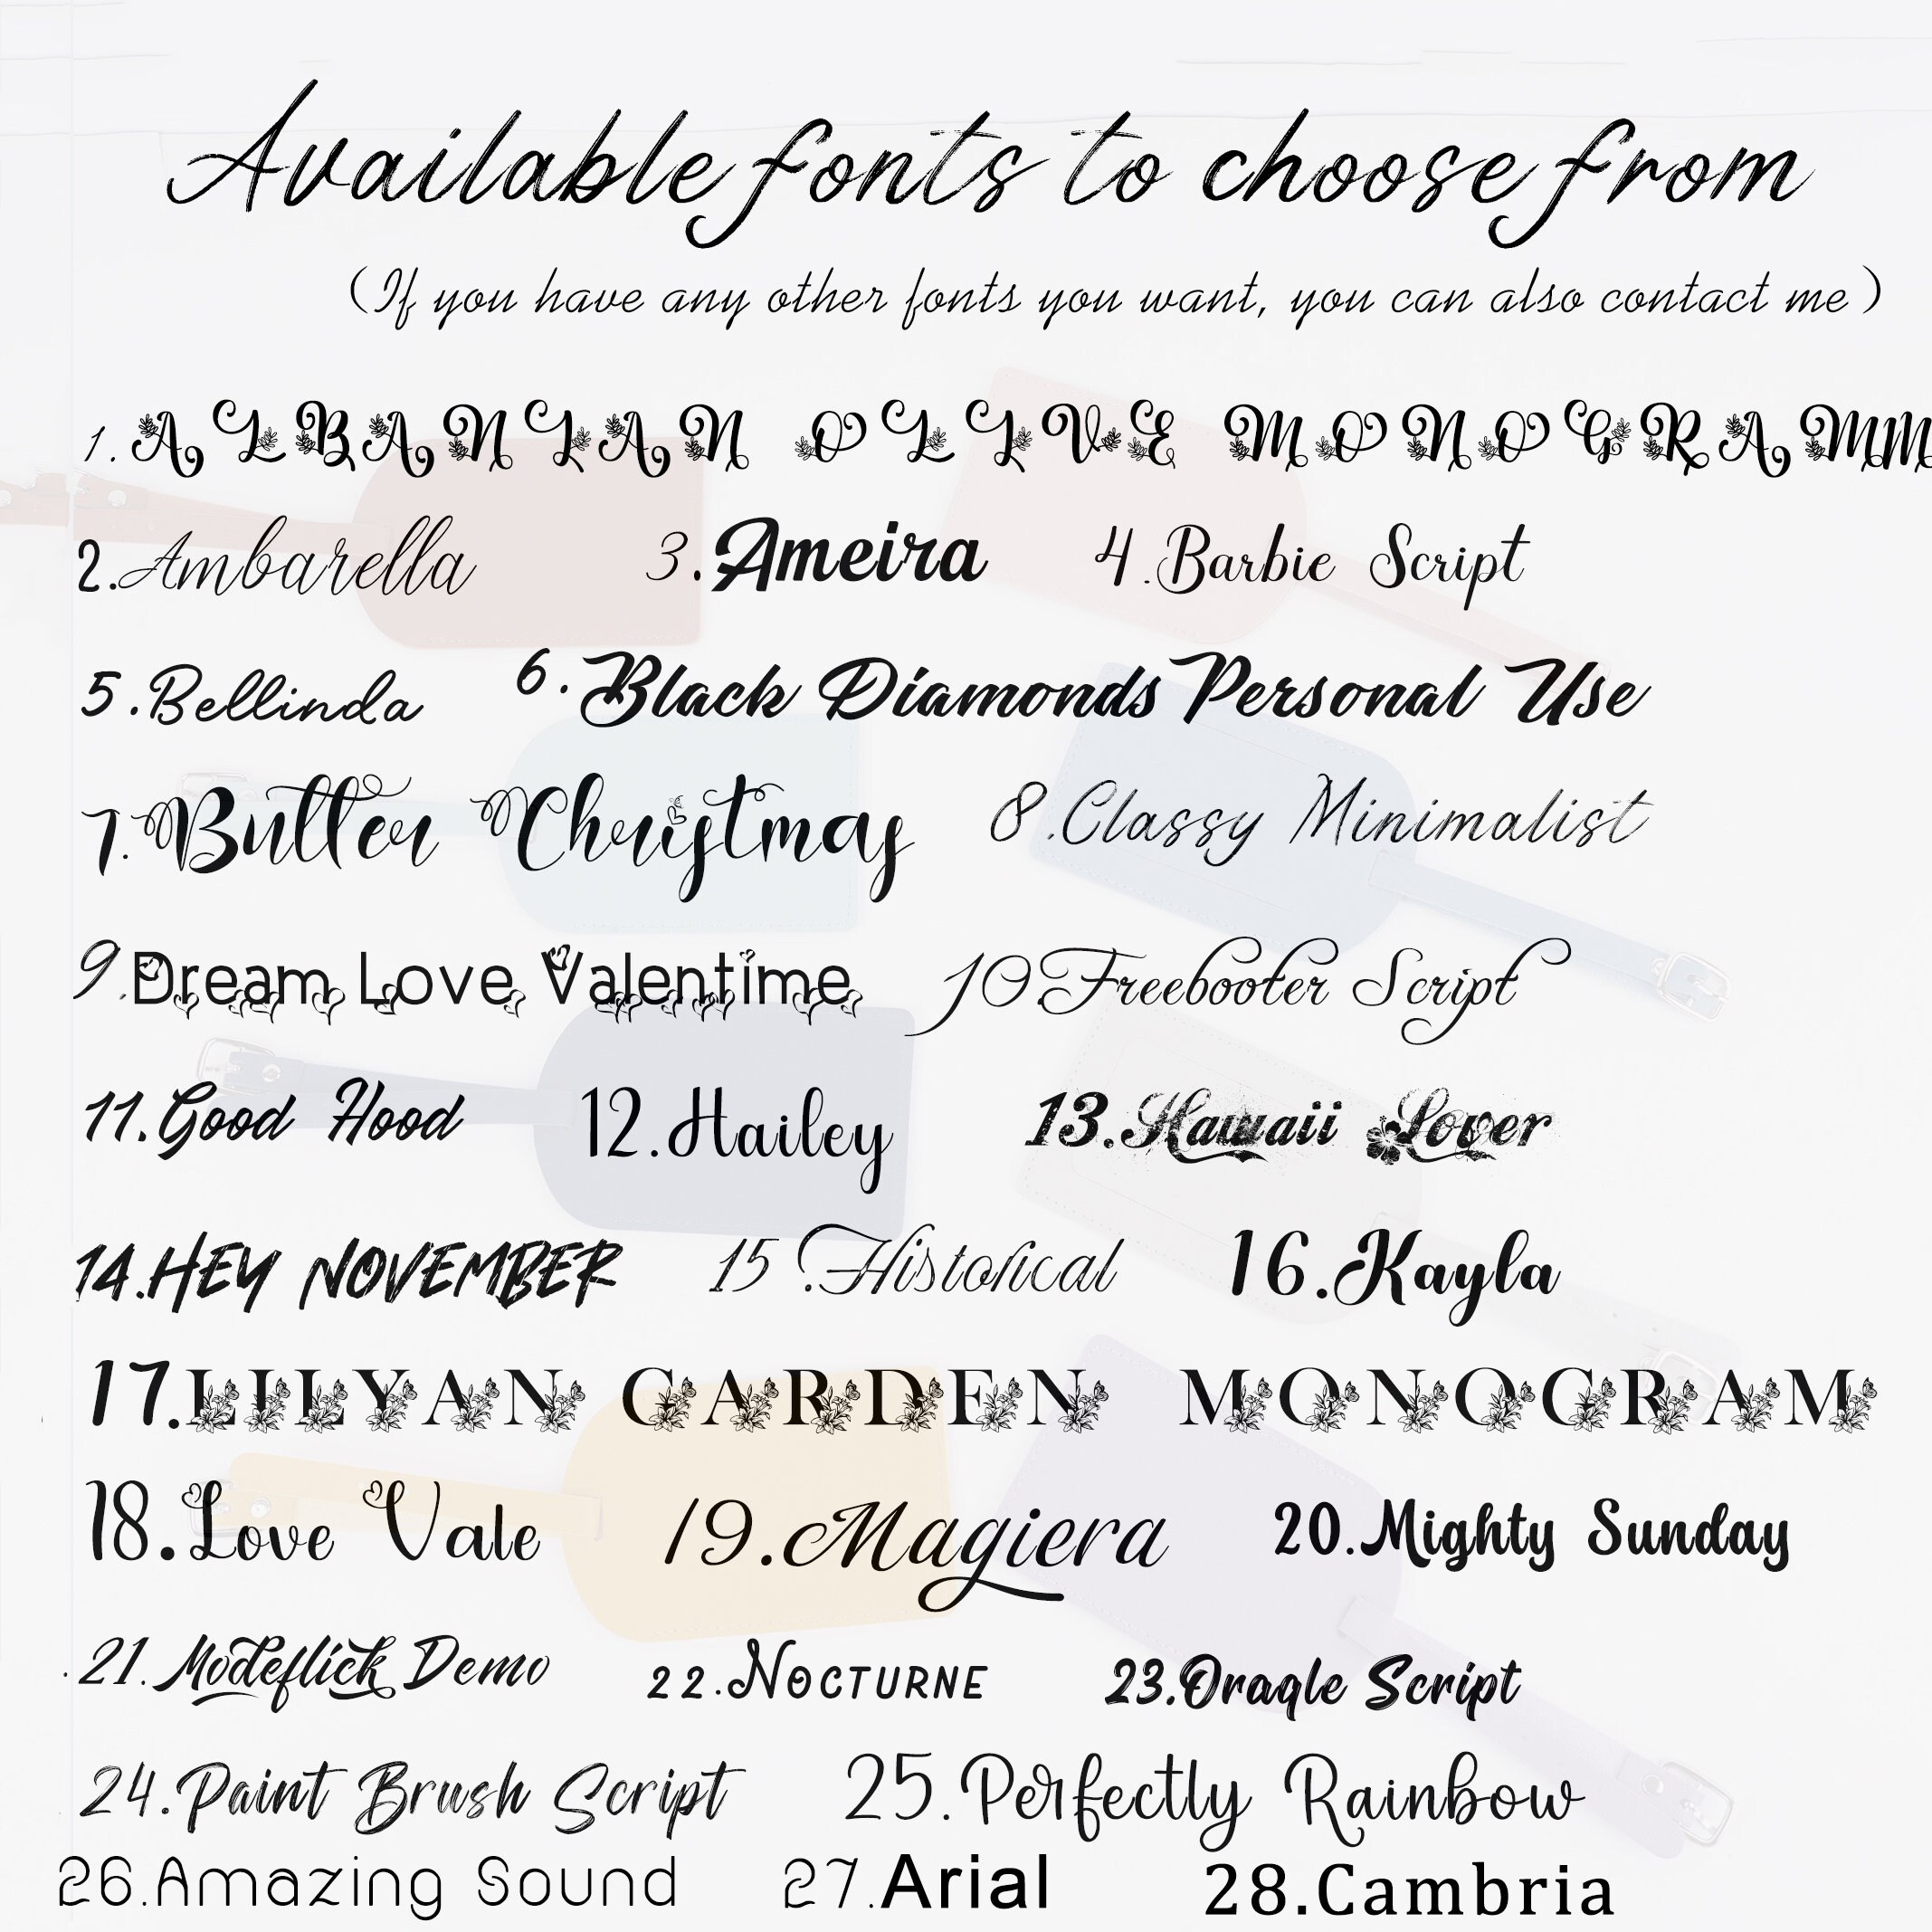 Available fonts to choose from
(If you have any other fonts you want, you can also contact me)
1. ALBANIAN OLIVE MONOGRAMM
2.Ambarella 3.Ameira 4.Barbie Script
5.Bellinda 6.Black Diamonds Personal Use
7.Butter Christmas 8.Classy Minimalist
9.Dream Love Valentime 10.Freebooter Script
11.Good Hood 12.Hailey 13.Hawaii Lover
14.HEY NOVEMBER 15.Historical 16.Kayla
17.LILYAN GARDEN MONOGRAM
18.Love Vale 19.Magiera 20.Mighty Sunday
21.Modeflick Demo 22.NOCTURNE 23.Oraqle Script
24.Paint Brush Script 25.Perfectly Rainbow
26.Amazing Sound 27.Arial 28.Cambria